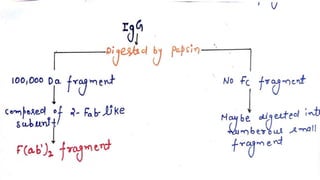 IgG
Digested by pepsin
100,000 Da fragment
No Fc fragment
composed of 2-Fab like
subunit
Maybe digested into
numberous small
fragment
F(ab')2 fragment